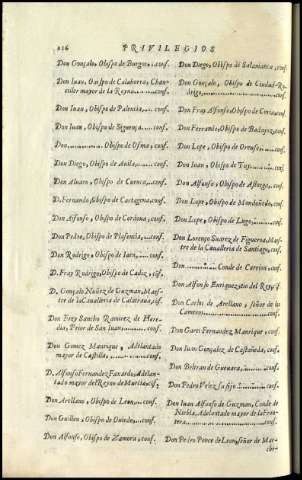 226
PRIVILEGIOS
Don Gonçalo, Obispo de Burgos, conf.
Don Iuan, Obispo de Calahorra, Chan-
ciller mayor de la Reyna conf.
Don Iuan, Obispo de Palencia, conf.
Don Iuan, Obispo de Siguença, conf.
Don, Obispo de Osma, conf.
Don Diego, Obispo de Auila, conf.
Don Aluaro, Obispo de Cuenca, conf.
D. Fernando, Obispo de Cartagena, conf.
Don Alfonso, Obispo de Cordoua, conf.
Don Pedro, Obispo de Plasencia, conf.
Don Rodrigo, Obispo de Iaen, conf.
D. Fray Rodrigo, Obispo de Cadiz, conf.
D. Gonçalo Nuñez de Guzman, Maes-
tre de la Caualleria de Calatraua, conf.
Don Frey Sancho Ramirez de Here-
dia, Prior de San Iuan conf.
Don Gomez Manrique, Adelantado
mayor de Castilla conf.
D. Alfonso Fernandez Faxardo, Adelan-
tado mayor del Reyno de Murcia conf.
Don Arellano, Obispo de Leon, conf.
Don Guillen, Obispo de Ouiedo, conf.
Don Alfonso, Obispo de Zamora, conf.
Don Diego, Obispo de Salamanca, conf.
Don Gonçalo, Obispo de Ciudad-Ro-
drigo, conf.
Don Fray Alfonso, Obispo de Coria, conf.
Don Ferrand, Obispo de Badajoz, conf.
Don Lope, Obispo de Orense, conf.
Don Iuan, Obispo de Tuy, conf.
Don Alfonso, Obispo de Astorga, conf.
Don Lope, Obispo de Mondoñedo, conf.
Don Lope, Obispo de Lugo, conf.
Don Lorenço Suarez de Figueroa, Maes-
tre de la Caualleria de Santiago, conf.
Don Conde de conf.
Don Alfonso Enriquez, tio del Rey
Don Carlos de Arellano, señor de los
Cameros conf.
Don Garci Fernandez Manrique, conf.
Don Iuan Gonçalez de Castañeda, conf.
Don Beltran de Gueuara, conf.
Don Pedro Velez su fijo conf.
Don Iuan Alfonso de Guzman, Conde de
Niebla, Adelantado mayor de la Fron-
tera conf.
Don Pedro Ponce de Leon, señor de Mar-
che-